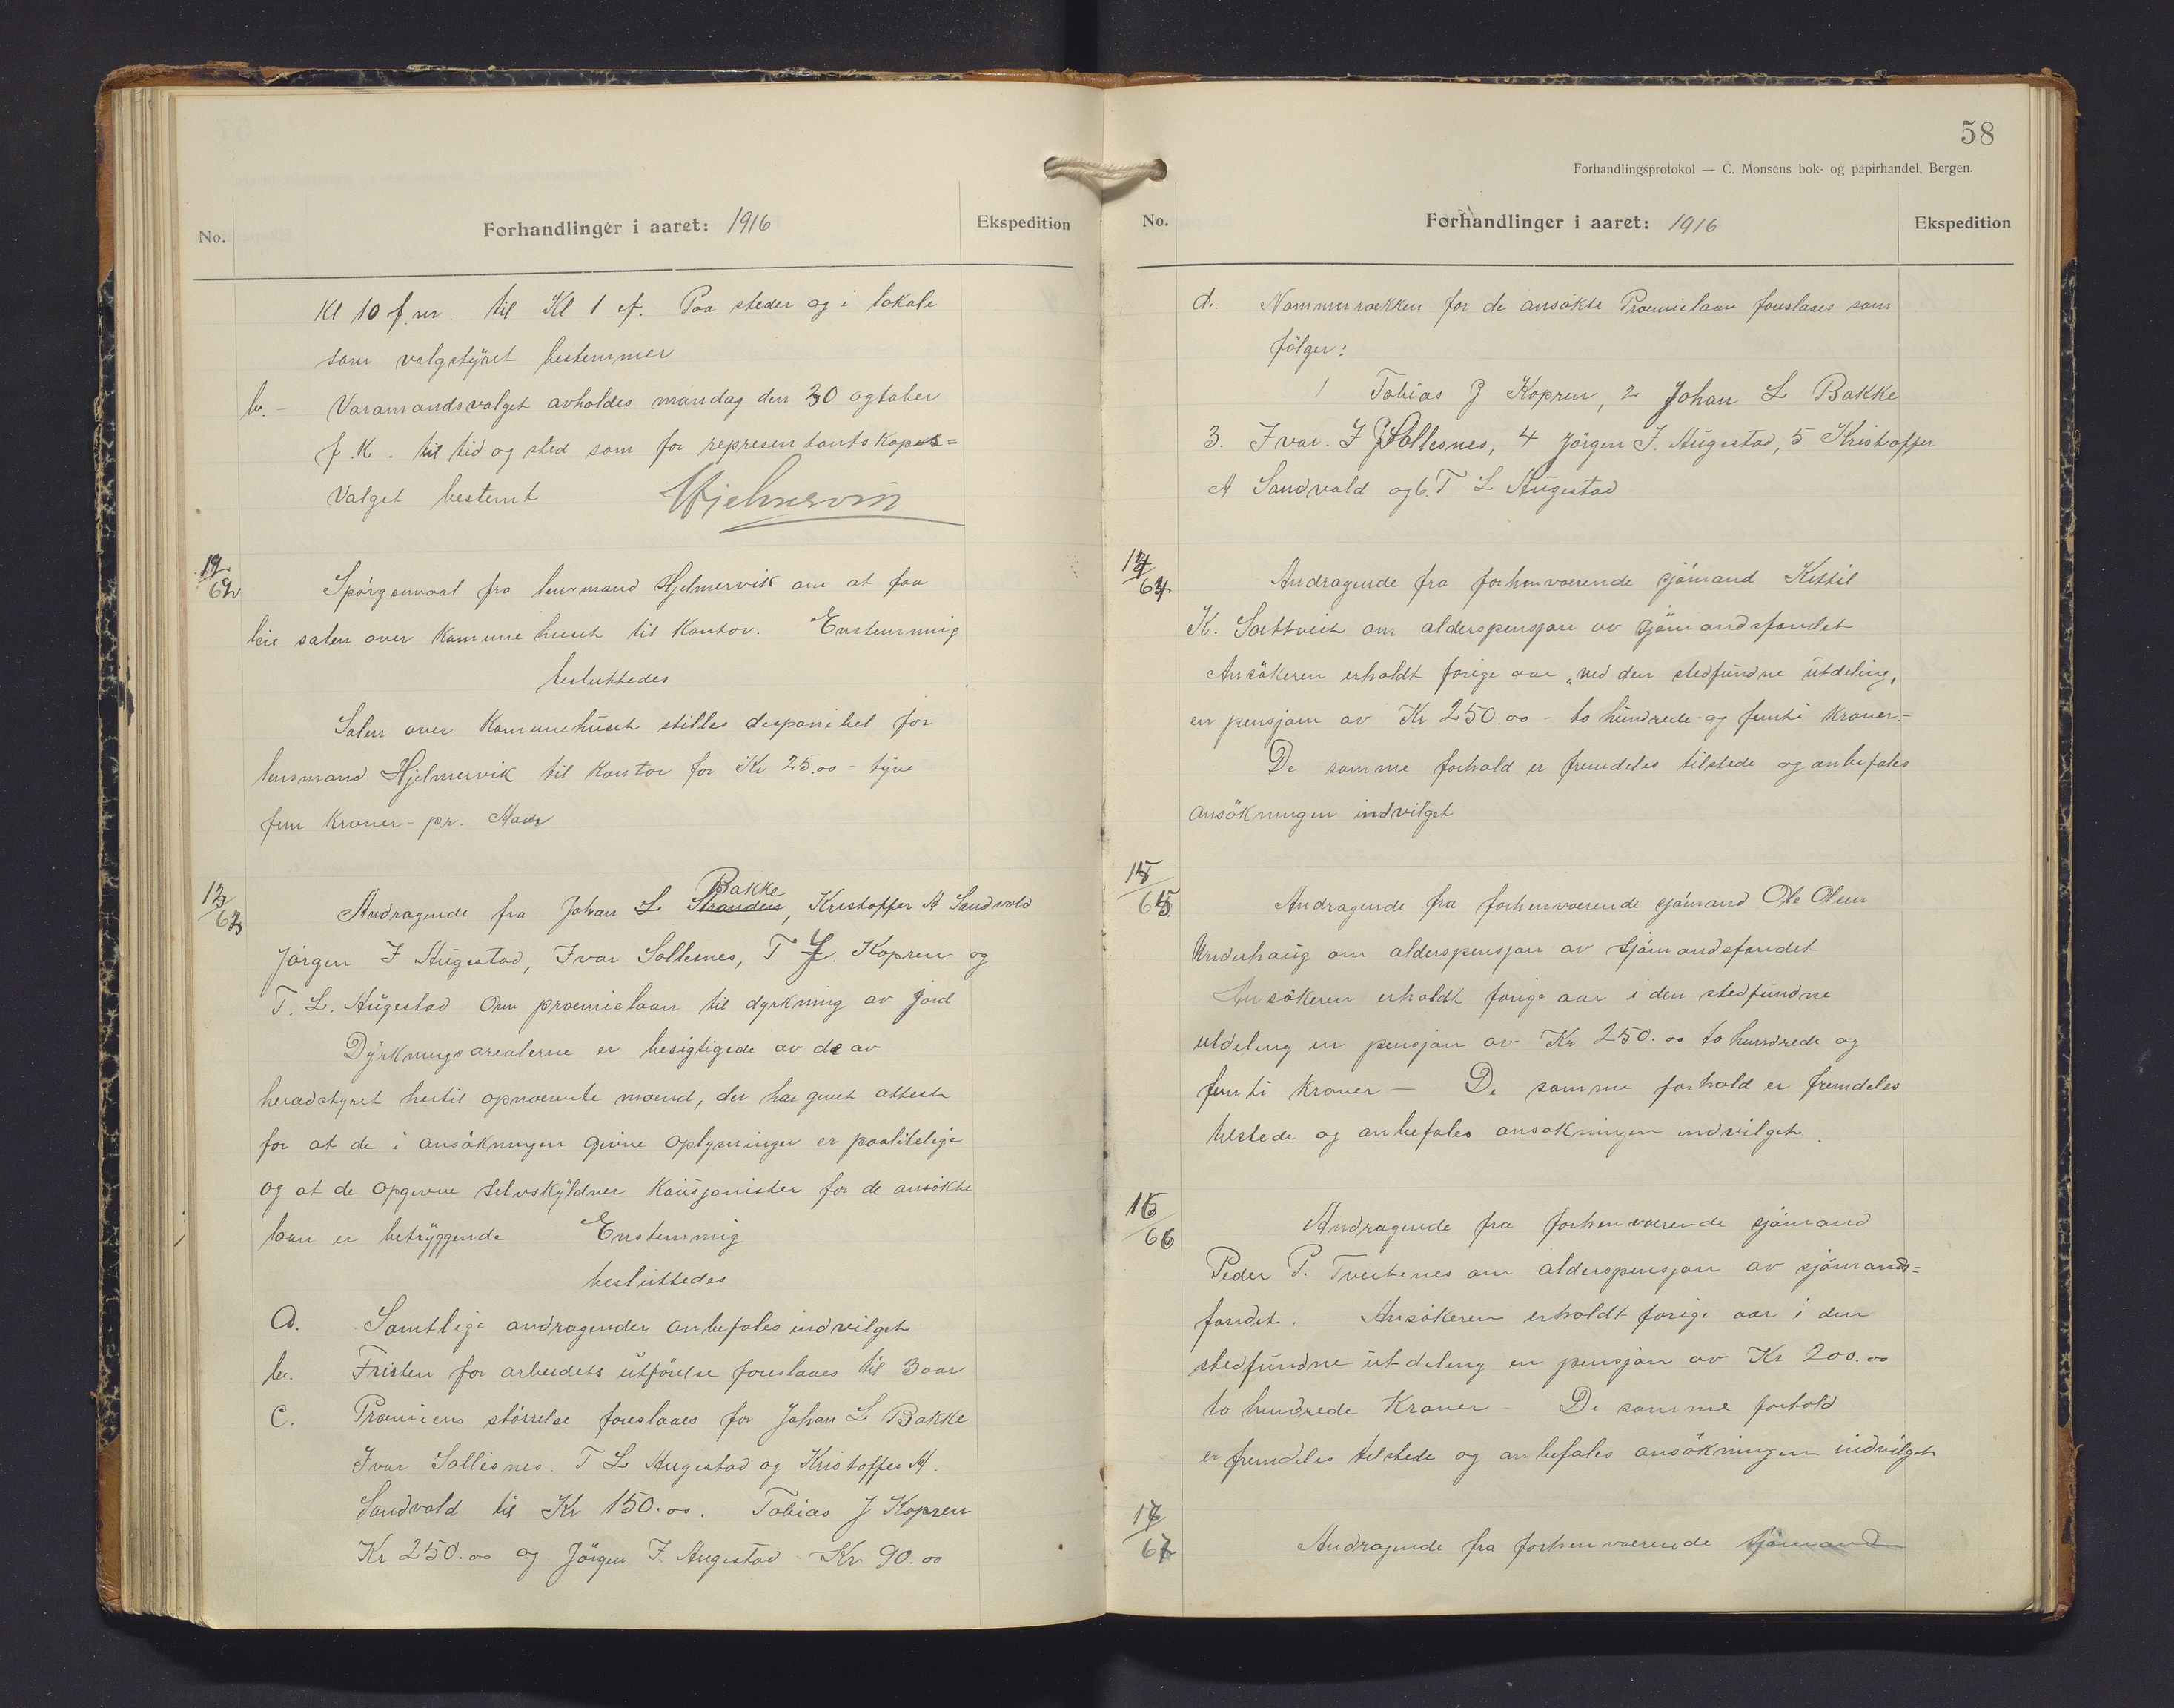 No.
Forhandlinger i aaret: 1916
Ekspedition
Kl 10 f.m. til Kl 1 ef. Paa steder og i lokale
som valgstyret bestemmer
b. – Varamandsvalget avholdes mandag den 30 ogtober
f.K. til tid og sted som for representantskaps=
valget bestemt
12/62 Spörgsmaal fra lensmand Hjelmervik om at faa
leie salen over Kommunehuset til Kontor. Enstemmig
besluttedes
Salen over Kommunehuset stilles disponibel for
lensmand Hjelmervik til Kontor for Kr 25.00 – tyve
fem Kroner – pr. Aar
Bakke
13/63 Andragende fra Johan L Stranden, Kristoffer A Sandvold
Jörgen I Augestad, Ivar Sollesnes, T J. Kopren og
T. L. Augestad Om præmielaan til dyrkning av jord
Dyrkningsarealerne er besigtigede av de av
heradstyret hertil opnævnte mænd, der har givet attest
for at de i ansökningen givne oplysninger er paalitelige
og at de opgivne selvskyldner Kausjonister for de ansökte
laan er betryggende Enstemmig
besluttedes
a. Samtlige andragender anbefales indvilget
b. Fristen for arbeidets utförelse foreslaaes til 3 aar
C. Præmiens störrelse foreslaaes for Johan L Bakke
Ivar Sollesnes. T L Augestad og Kristoffer A.
Sandvold til Kr 150.00. Tobias J Kopren
Kr 250.00 og Jörgen I. Augestad Kr 90.00
58
Forhandlingsprotokol — C. Monsens bok- og papirhandel, Bergen.
No.
Forhandlinger i aaret: 1916
Ekspedition
d. Nommerrækken for de ansökte Præmielaan foreslaaes som
fölger:
1 Tobias J Kopren, 2 Johan L Bakke
3. Ivar. I Sollesnes, 4 Jörgen I. Augestad, 5. Kristoffer
A Sandvold og 6. T L Augestad
14/64 Andragende fra forhenværende sjömand Kittil
K. Sættveit om alderspensjon av sjömandsfondet
Ansökeren erholdt forige aar „ved den stedfundne utdeling,
en pensjon av Kr 250.00 – to hundrede og femti Kroner –
De samme forhold er fremdeles tilstede og anbefales
ansökningen indvilget
15/65 Andragende fra forhenværende sjömand Ole Olsen
Underhaug om alderspensjon av sjömandsfondet
Ansökeren erholdt forige aar i den stedfundne
utdeling en pensjon av Kr 250.00 to hundrede og
femti Kroner – De samme forhold er fremdeles
tilstede og anbefales ansökningen indvilget.
16/66 Andragende fra forhenværende sjömand
Peder P. Tveitenes om alderspensjon av sjömands=
fondet. Ansökeren erholdt forige aar i den
stedfundne utdeling en pensjon av Kr 200.00
to hundrede Kroner – De samme forhold
er fremdeles tilstede og anbefales ansökningen indvilget
17/67 Andragende fra forhenværende sjömand